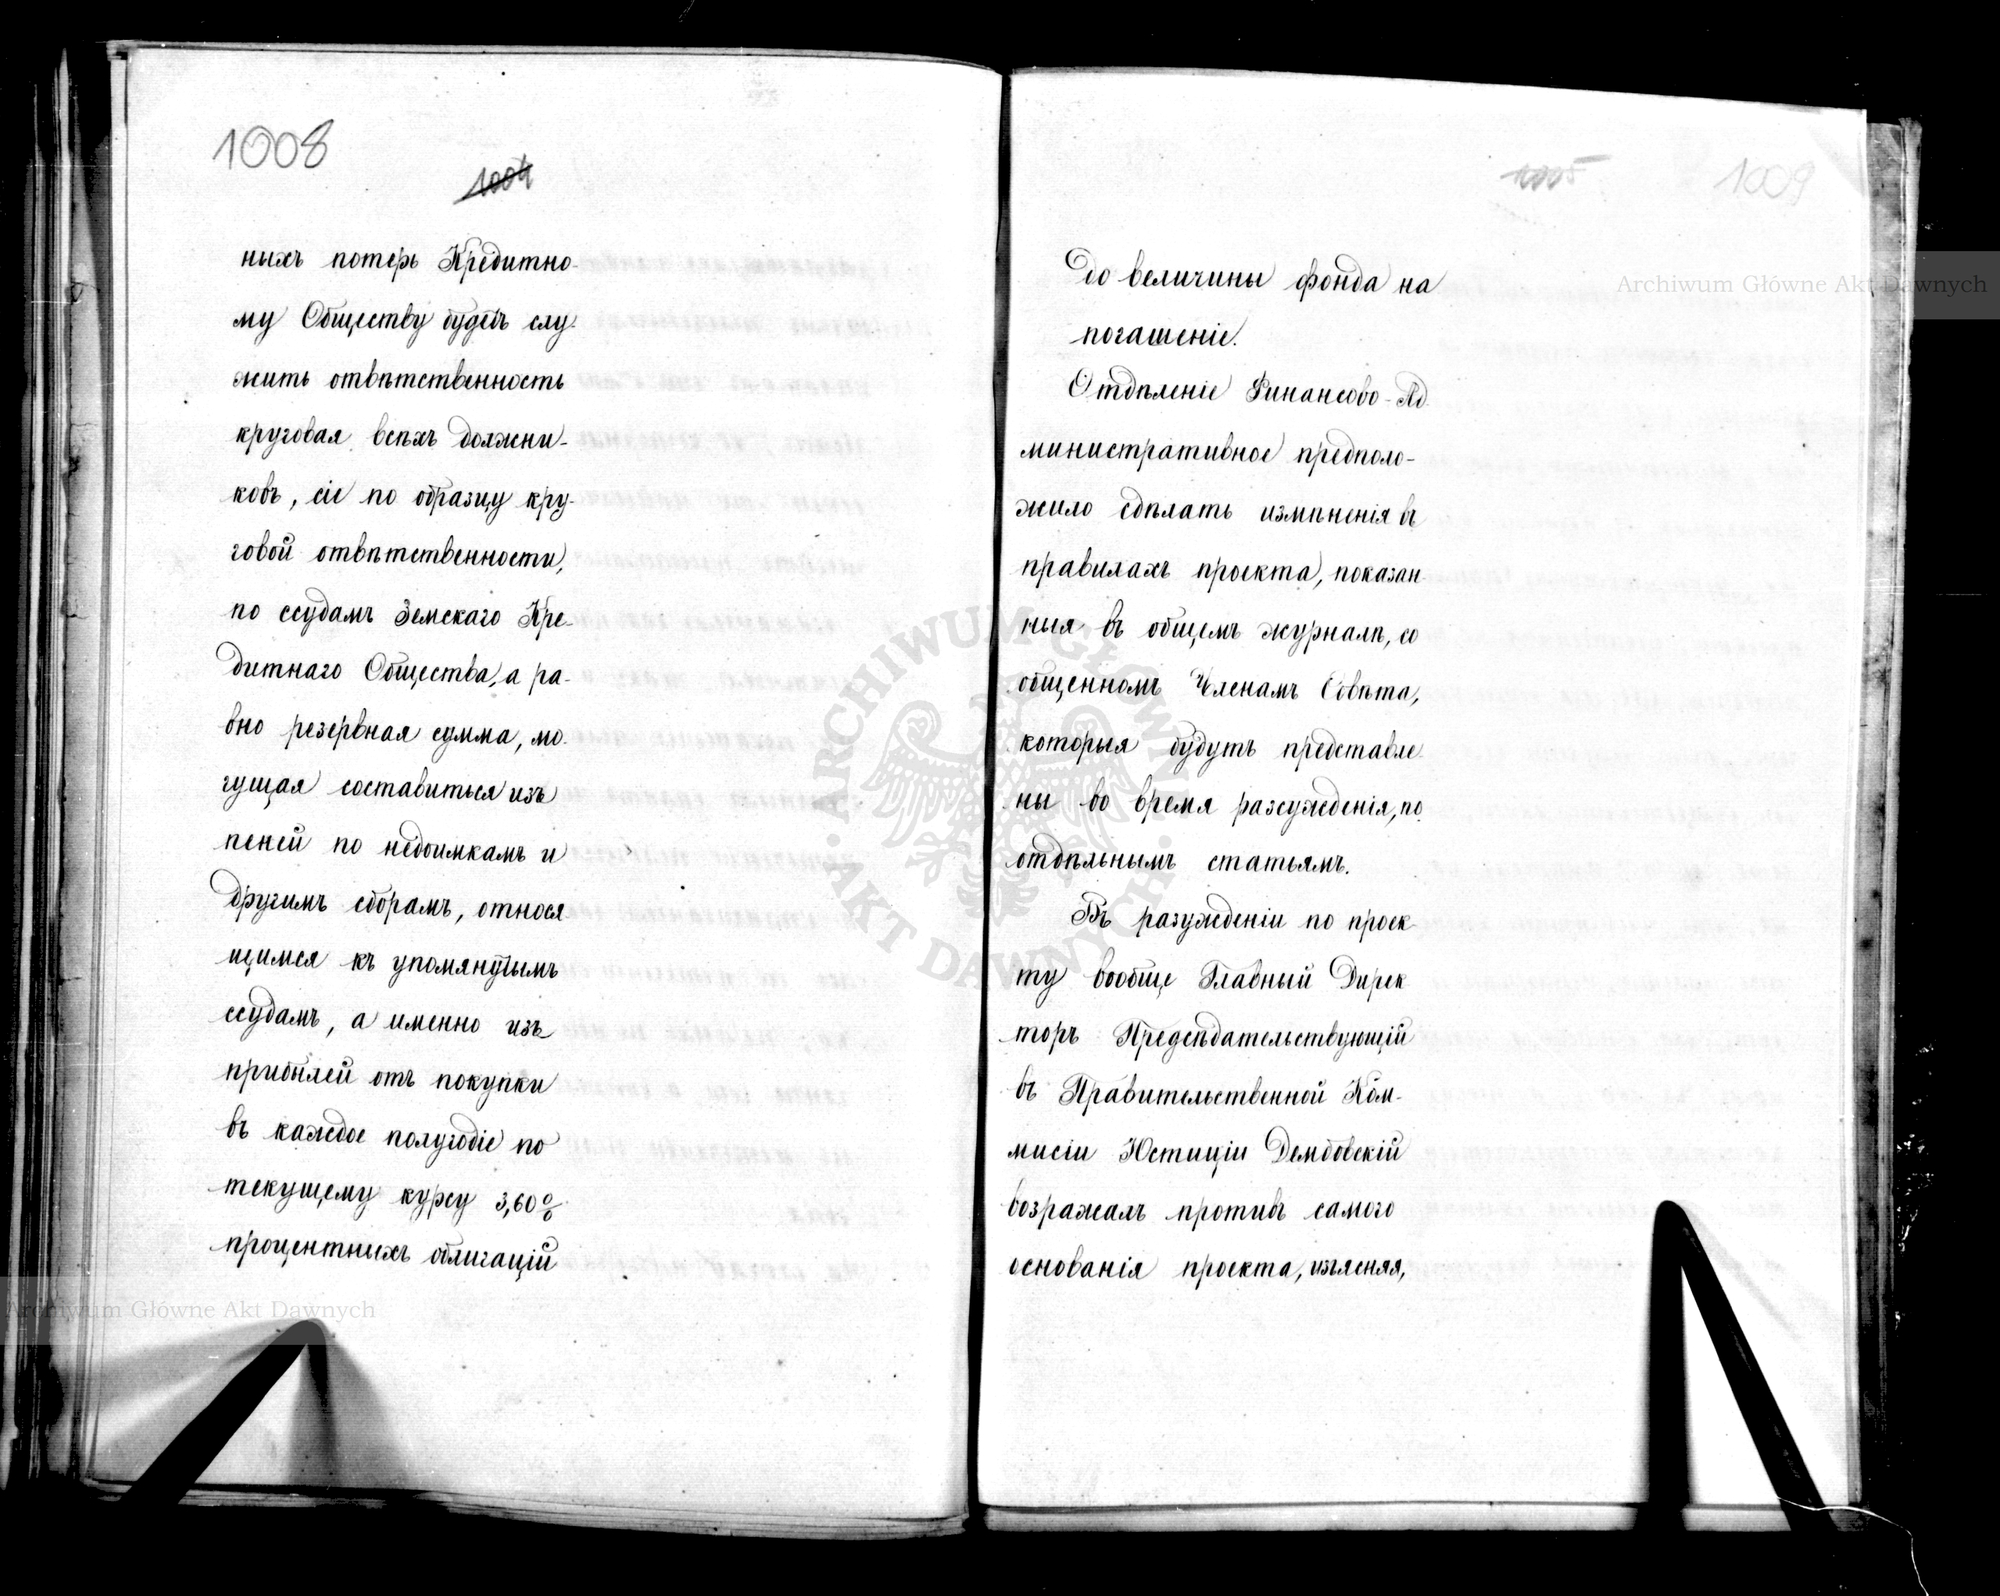 1008
1004
ныхъ потерь Кредитно-
му Обществу будетъ слу-
жить отвѣтственность
круговая всѣхъ должни-
ковъ, сіе по образцу кру-
говой отвѣтственности,
по ссудамъ Земскаго Кре-
дитнаго Общества, а ра-
вно резервная сумма, мо-
гущая составиться изъ
пеней по недоимкамъ и
другимъ сборамъ, относя
щимся къ упомянутымъ
ссудамъ, а именно изъ
прибылей отъ покупки
въ каждое полугодіе по
текущему курсу 3,60%
процентныхъ облигацій
1005 1009
до величины фонда на
погашеніе.
Отдѣленіе Финансово-Ад-
министративное предполо-
жило сдѣлать измѣненія въ
правилахъ проекта, показан-
ныя въ общемъ журналѣ, со
общенномъ Членамъ Совѣта,
которыя будутъ представле-
ны во время разсужденія, по
отдѣльнымъ статьямъ.
Въ разужденіи по проек-
ту вообще Главный Дирек
торъ Предсѣдательствующій
въ Правительственной Ком-
мисіи Юстиціи Дембовскій
возражалъ противъ самого
основанія проекта, изъясняя,
Archiwum Główne Akt Dawnych
Archiwum Główne Akt Dawnych
ARCHIWUM GŁÓWNE
AKT DAWNYCH